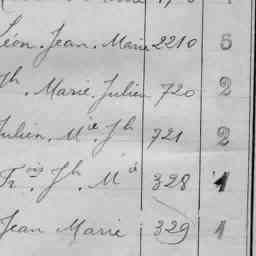 Léon. Jean. Marie 2210 5
Jh. Marie. Julien 720 2
Julien. Mie. Jh 721 2
Frois. Jh. Mie 328 1
Jean Marie 329 1